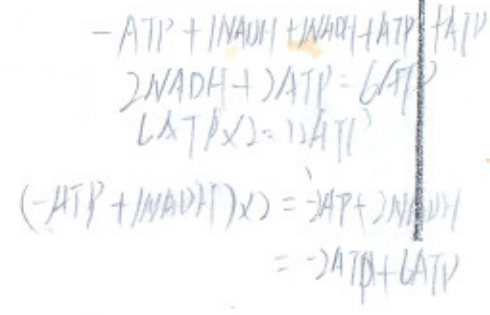 -ATP + 1NADH + 1NADH + ATP + ATP
2NADH + 2ATP = 6ATP
6ATP x 2 = 12ATP
(-ATP + 1NADH) x 2 = -2ATP + 2NADH
= -2ATP + 6ATP